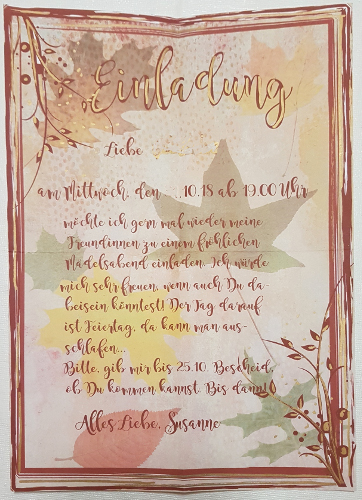 Einladung
Liebe
am Mittwoch, den . .10.18 ab 19.00 Uhr
möchte ich gern mal wieder meine
Freundinnen zu einem fröhlichen
Mädelsabend einladen. Ich würde
mich sehr freuen, wenn auch Du da-
beisein könntest! Der Tag darauf
ist Feiertag, da kann man aus-
schlafen...
Bitte, gib mir bis 25.10. Bescheid,
ob Du kommen kannst. Bis dann!
Alles Liebe, Susanne